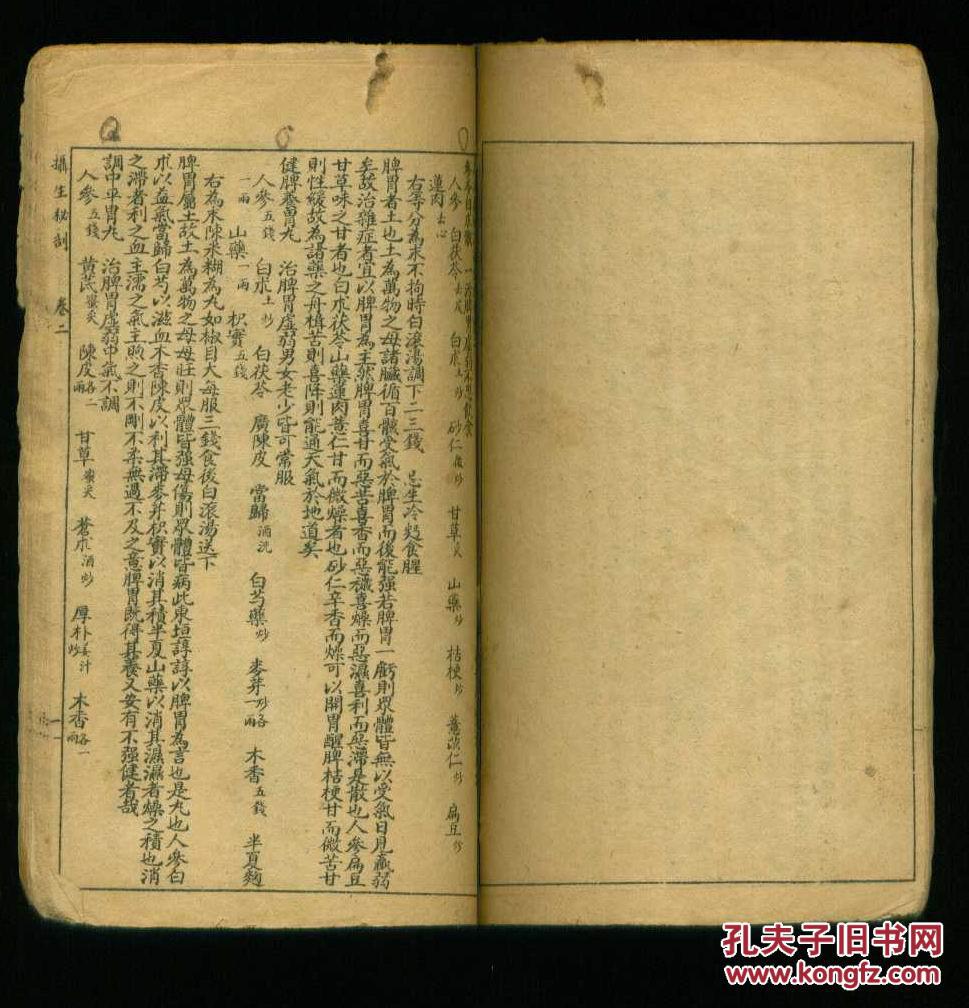 參苓白朮散 一 治脾胃虛弱不思飲食
人參 白茯苓去皮 白朮土炒 砂仁後炒 甘草炙 山藥炒 桔梗炒 薏苡仁炒 扁豆炒
蓮肉去心
右等分為末不拘時白滾湯調下二三錢 忌生冷麪食腥
脾胃者土也土為萬物之母諸臟循百骸受氣於脾胃而後能强若脾胃一虧則眾體皆無以受氣日見羸弱
矣故治雜症者宜以脾胃為主然脾胃喜甘而惡苦喜香而惡穢喜燥而惡濕喜利而惡滯是散也人參扁豆
甘草味之甘者也白朮茯苓山藥蓮肉薏仁甘而微燥者也砂仁辛香而燥可以開胃醒脾桔梗甘而微苦甘
則性緩故為諸藥之舟楫苦則喜降則能通天氣於地道矣
健脾養胃丸 治脾胃虛弱男女老少皆可常服
人參五錢 白朮土炒 白茯苓 廣陳皮 當歸酒洗 白芍藥炒 麥芽炒各一兩 木香五錢 半夏麯
一兩 山藥一兩 枳實五錢
右為末陳米糊為丸如椒目大每服三錢食後白滾湯送下
脾胃屬土故土為萬物之母母壯則眾體皆强母傷則眾體皆病此東垣諄諄以脾胃為言也是丸也人參白
朮以益氣當歸白芍以滋血木香陳皮以利其滯麥芽枳實以消其積半夏山藥以消其濕濕者燥之積也消
之滯者利之血主濡之氣主煦之則不剛不柔無過不及之意脾胃既得其養又安有不强健者哉
調中平胃丸 治脾胃虛弱中氣不調
人參五錢 黃茋蜜炙 陳皮各二兩 甘草蜜炙 蒼朮酒炒 厚朴姜汁炒 木香各一兩
攝生秘剖 卷二
孔夫子旧书网
www.kongfz.com